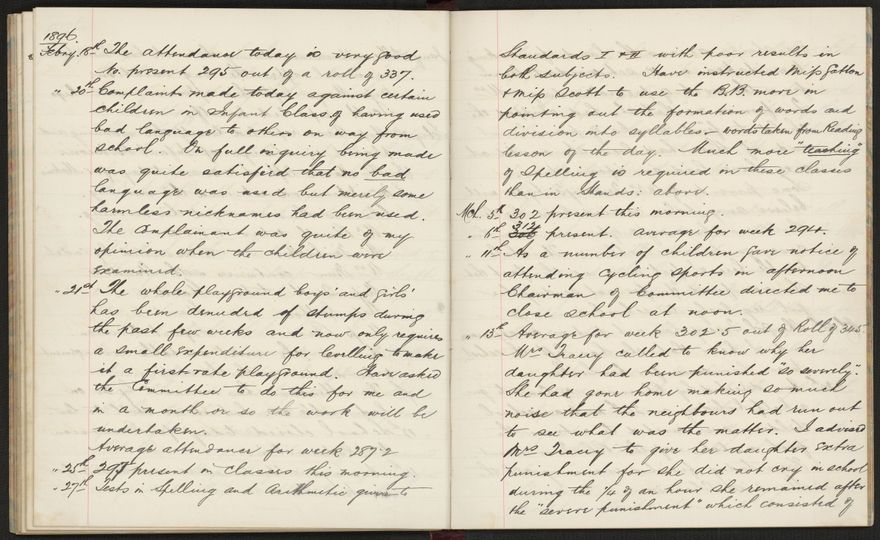 1896.
Febry. 18th The attendance today is very good
No. present 295 out of a roll of 337.
" 20th Complaints made today against certain
children in Infant Class of having used
bad language to others on way from
school. On full inquiry being made
was quite satisfied that no bad
language was used but merely some
harmless nicknames had been used.
The Complainant was quite of my
opinion when the children were
examined.
" 21st The whole playground boys' and girls'
has been denuded of stumps during
the past few weeks and now only requires
a small expenditure for levelling to make
it a first rate playground. Have asked
the Committee to do this for me and
in a month or so the work will be
undertaken.
Average attendance for week 287.2
" 25th present in classes this morning.
" 27th Tests in Spelling and Arithmetic given to
Standards I & II with poor results in
both subjects. Have instructed Miss Gatton
& Miss Scott to use the B.B. more in
pointing out the formation of words and
division into syllables - words taken from Reading
lesson of the day. Much more "teaching"
of Spelling is required in these classes
than in Stands: above.
Mch. 5th 302 present this morning.
" 6th 312 present. average for week 294.
" 11th As a number of children gave notice of
attending Cycling Sports in afternoon
Chairman of Committee directed me to
close school at noon.
" 13th Average for week 302.5 out of Roll of 345
Mrs Tracy called to know why her
daughter had been punished "so severely".
She had gone home making so much
noise that the neighbours had run out
to see what was the matter. I advised
Mrs Tracy to give her daughter extra
punishment for she did not cry in school
during the 1/4 of an hour she remained after
the "severe punishment" which consisted of